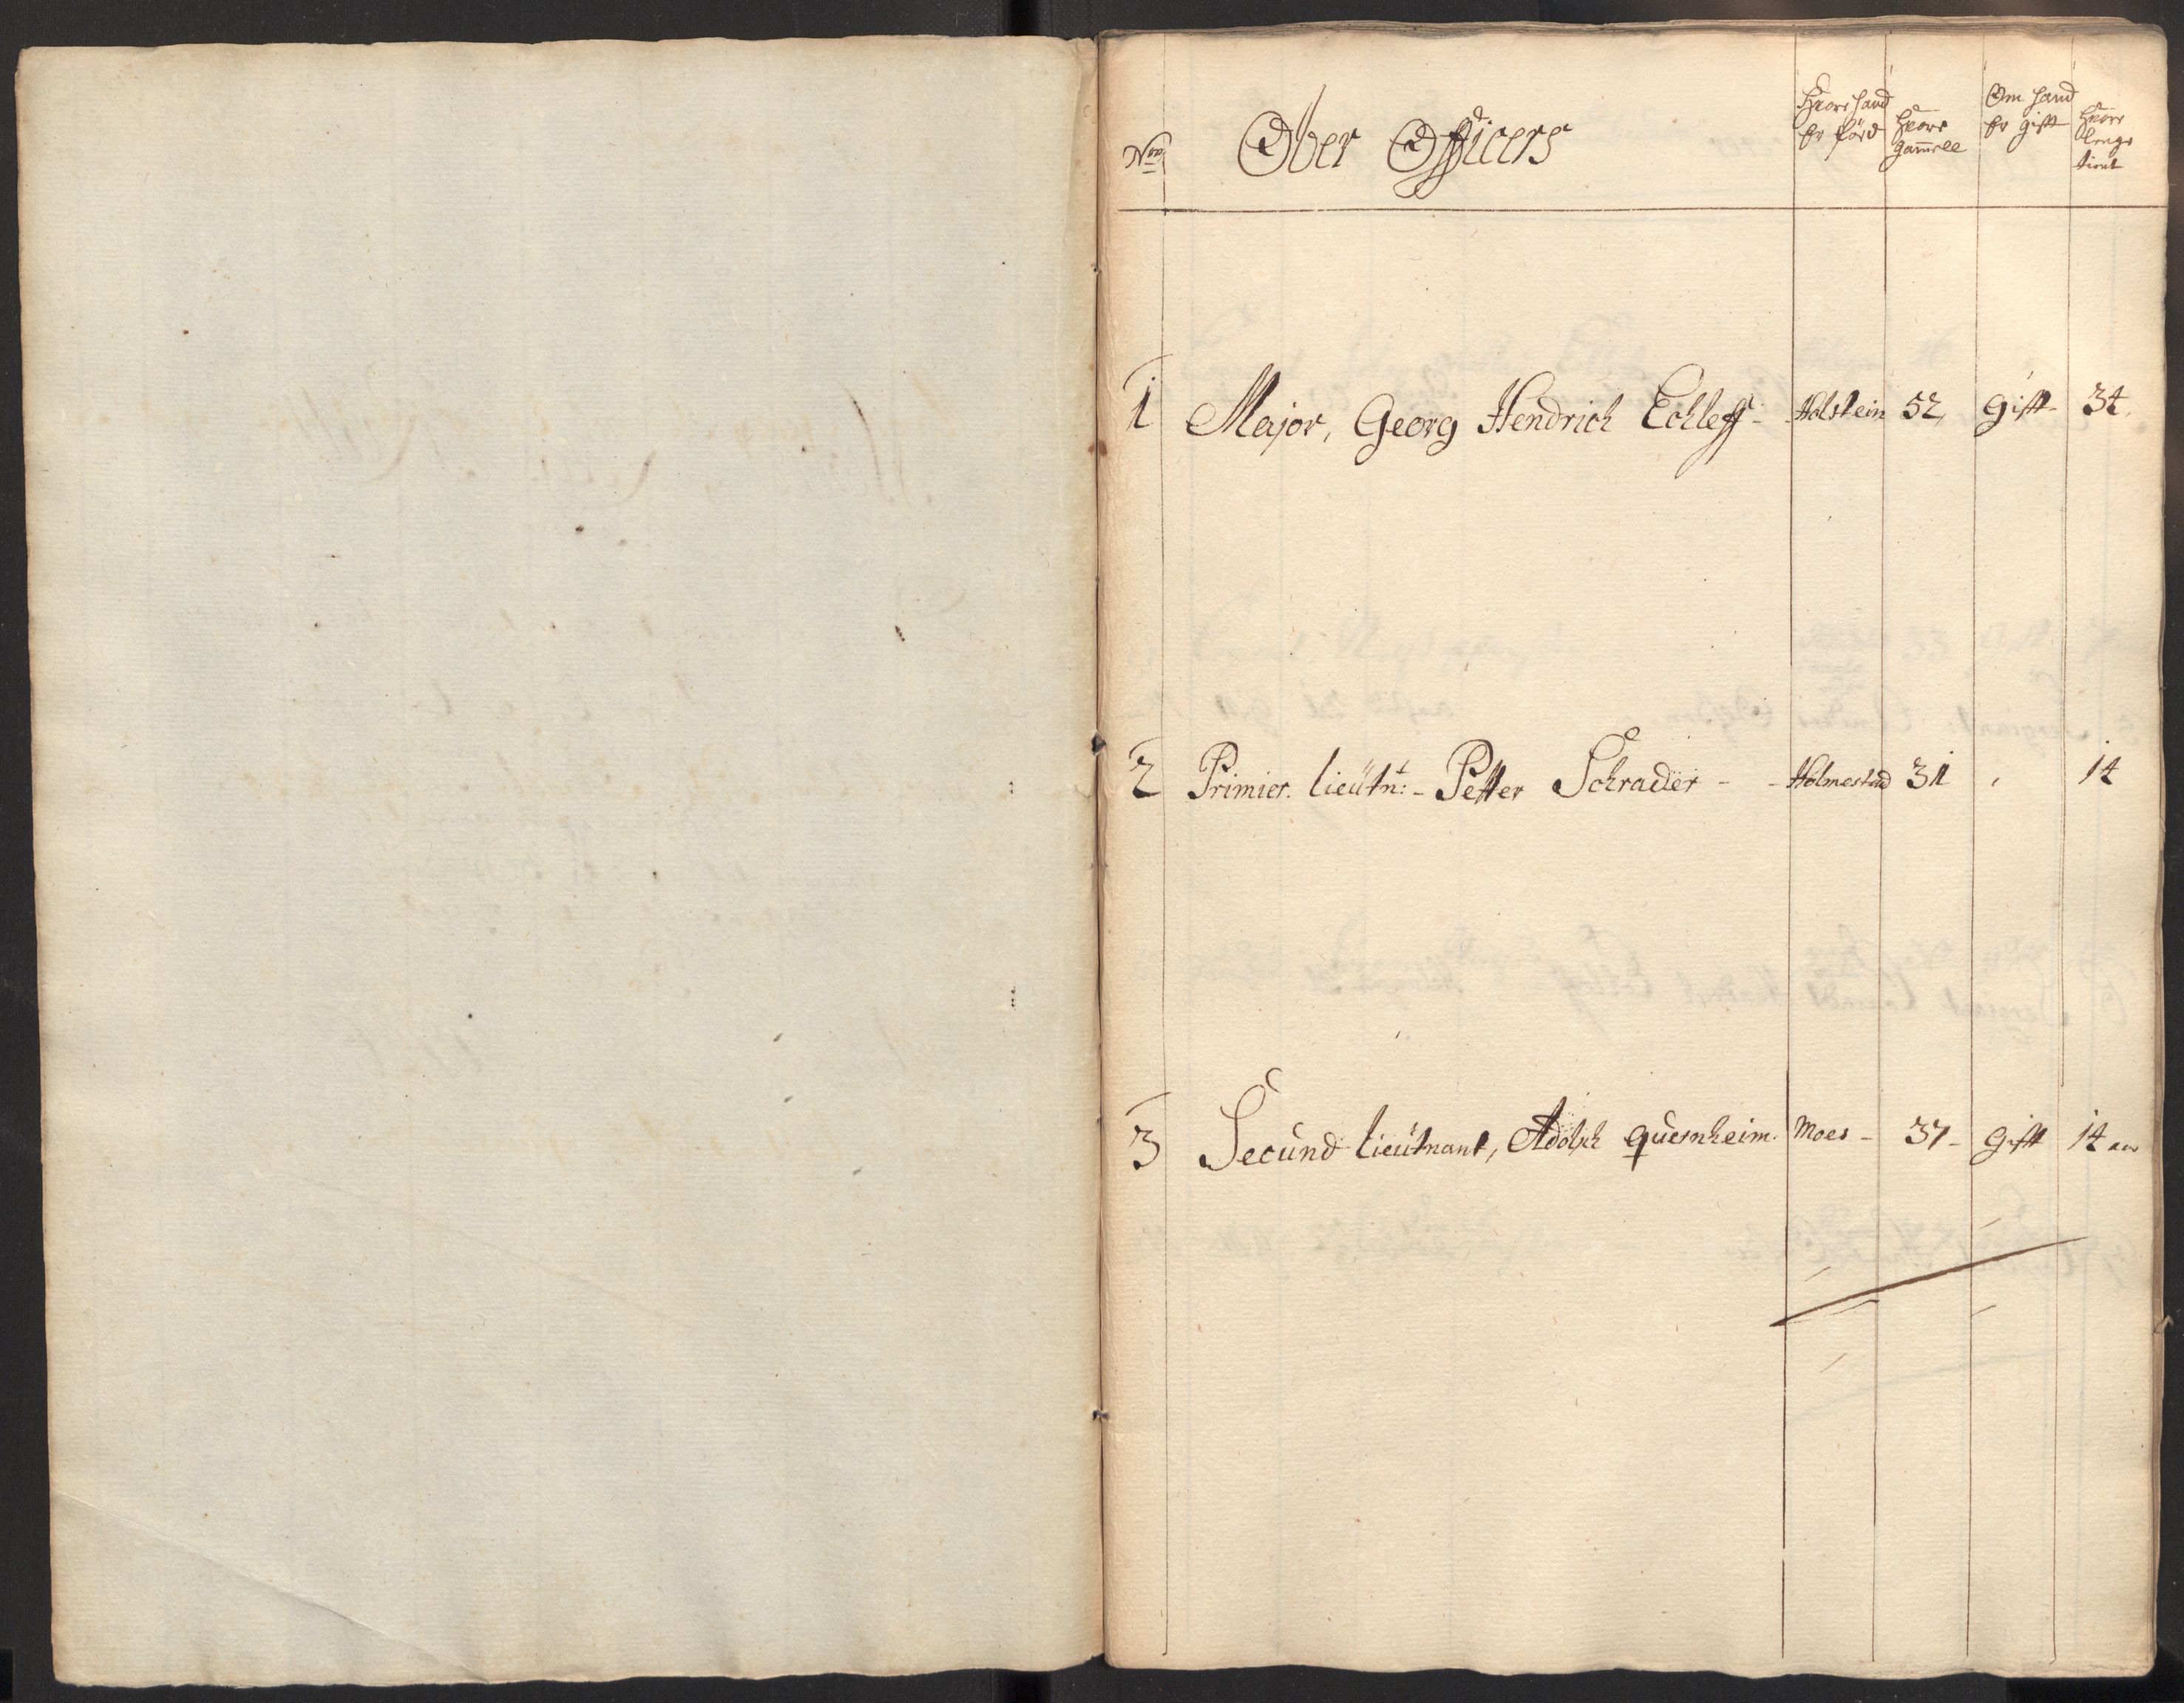 No
Ober Officers
Hvor hand
er fød
Hvor
gam̄ell
Om hand
er gift
Hvor
lenge
tient
1 Major, Georg Hendrich Echleff - Holstein 52, gift - 34.
2 Primier. lieutnt: - Petter Schrader - - Holmestad 31 14
3 Secund lieutnant, Adolph quernheim. Moes - 37 - gift 14 aar